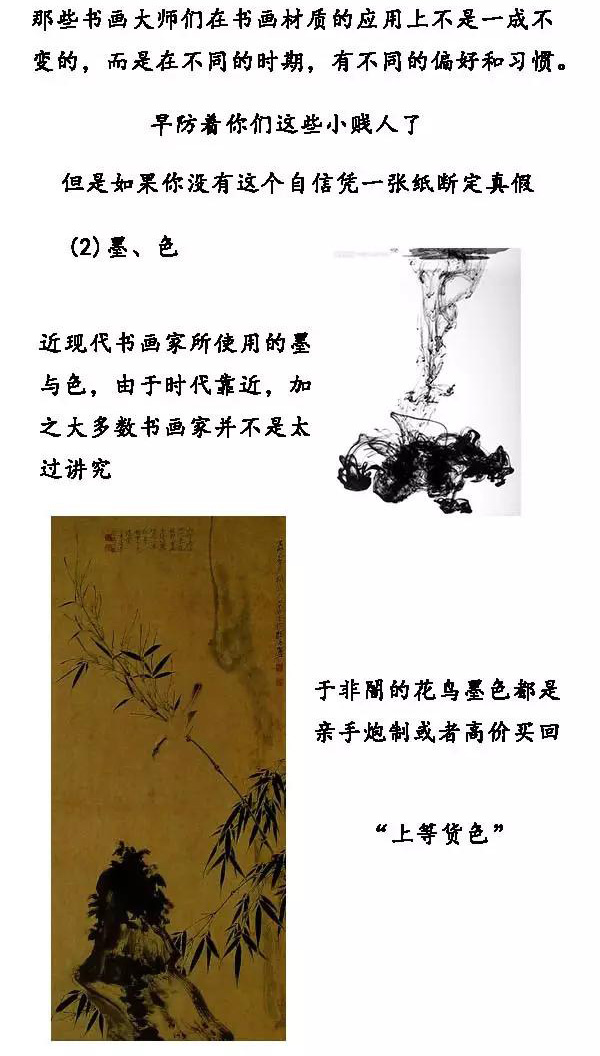 那些书画大师们在书画材质的应用上不是一成不
变的，而是在不同的时期，有不同的偏好和习惯。
早防着你们这些小贱人了
但是如果你没有这个自信凭一张纸断定真假
(2)墨、色
近现代书画家所使用的墨
与色，由于时代靠近，加
之大多数书画家并不是太
过讲究
于非闇的花鸟墨色都是
亲手炮制或者高价买回
“上等货色”